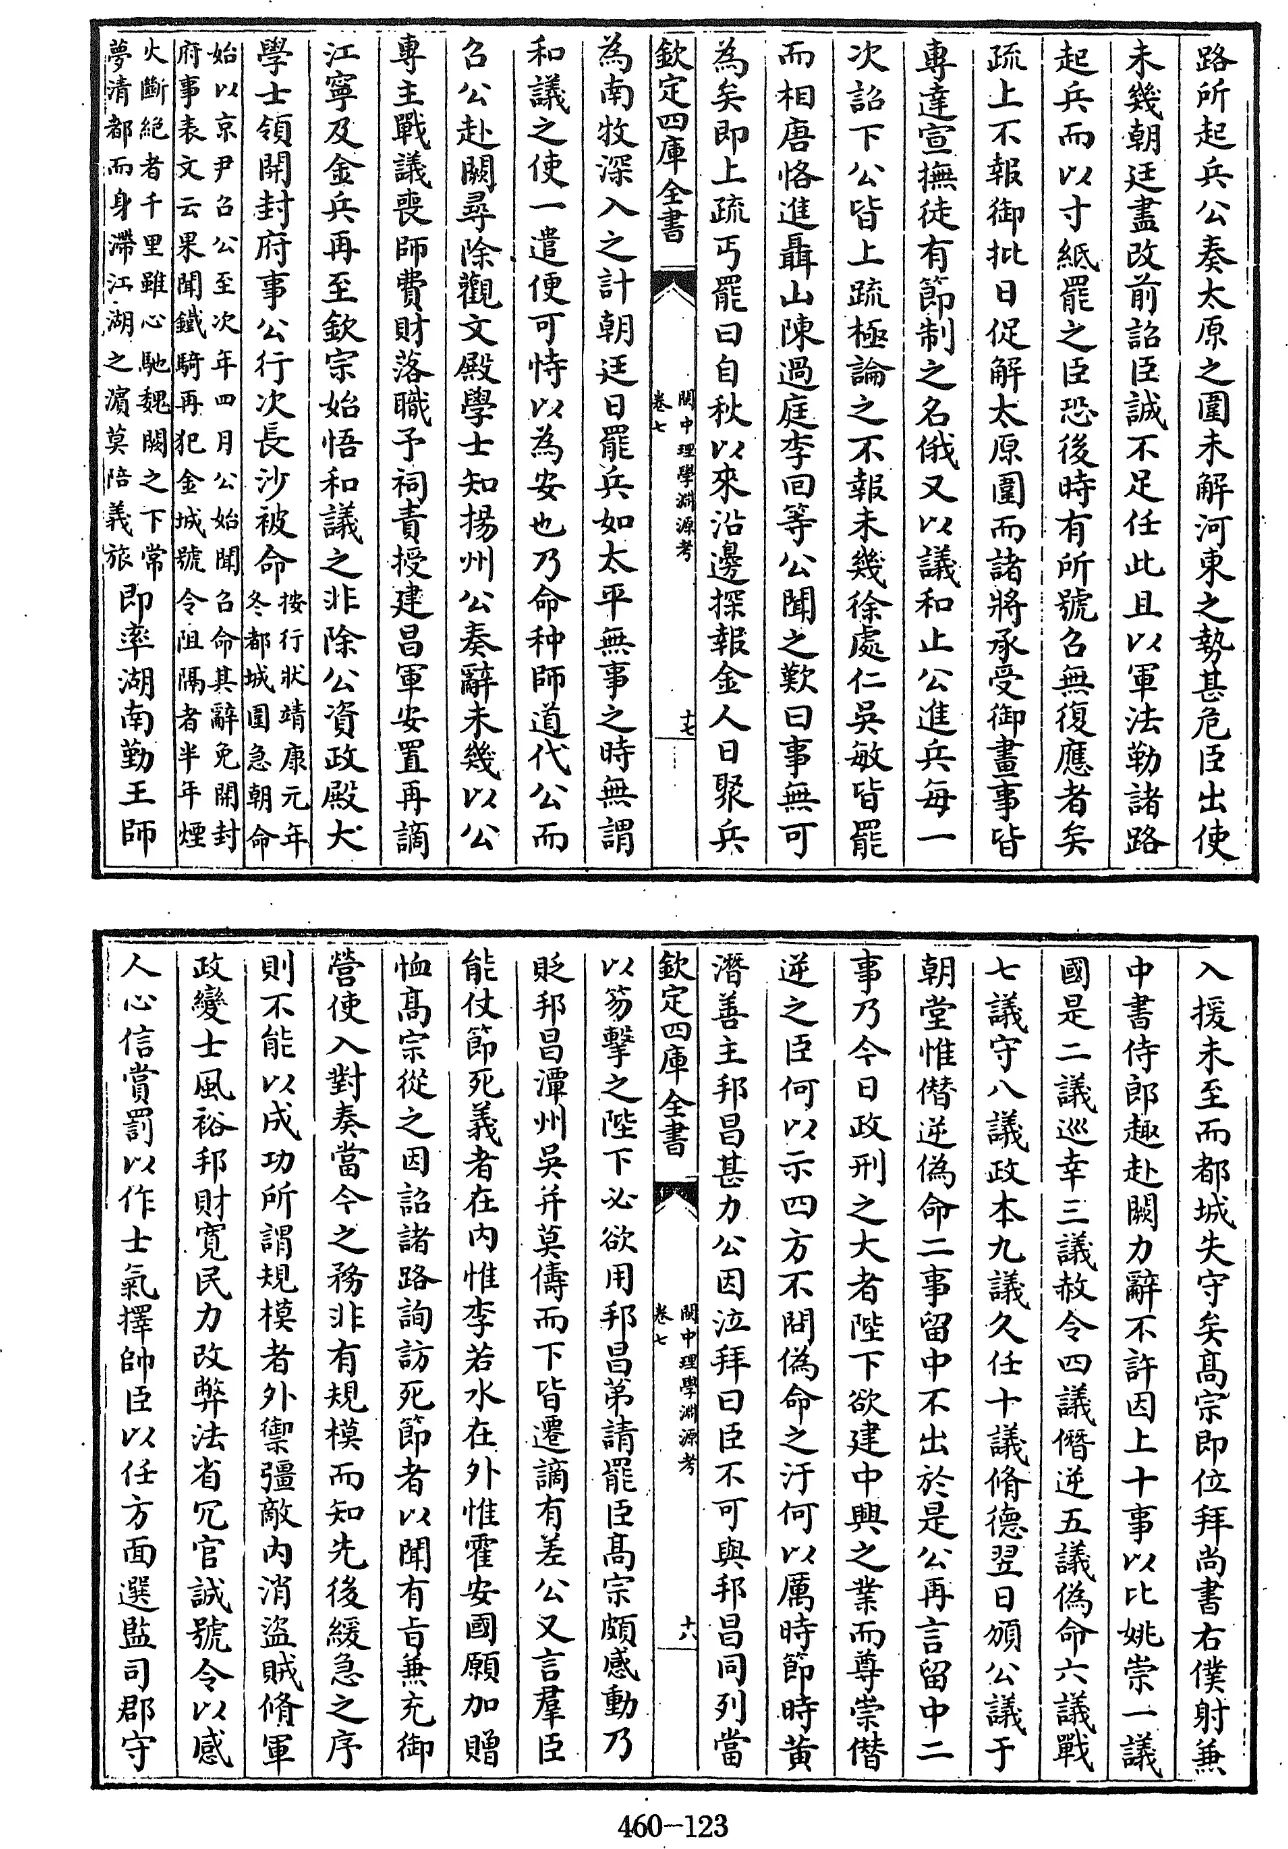 路所起兵公奏太原之圍未解河東之勢甚危臣出使
未幾朝廷盡改前詔臣誠不足任此且以軍法勒諸路
起兵而以寸紙罷之臣恐後時有所號召無復應者矣
疏上不報御批日促解太原圍而諸將承受御畫事皆
專達宣撫徒有節制之名俄又以議和止公進兵每一
次詔下公皆上疏極論之不報未幾徐處仁吳敏皆罷
而相唐恪進聶山陳過庭李回等公聞之歎曰事無可
為矣即上疏丐罷曰自秋以來沿邊探報金人日聚兵
欽定四庫全書
閩中理學淵源考
卷七
十七
為南牧深入之計朝廷日罷兵如太平無事之時無謂
和議之使一遣便可恃以為安也乃命种師道代公而
召公赴闕尋除觀文殿學士知揚州公奏辭未幾以公
專主戰議喪師費財落職予祠責授建昌軍安置再謫
江寧及金兵再至欽宗始悟和議之非除公資政殿大
學士領開封府事公行次長沙被命
按行狀靖康元年
冬都城圍急朝命
始以京尹召公至次年四月公始聞召命其辭免開封
府事表文云果聞鐵騎再犯金城號令阻隔者半年煙
火斷絕者千里雖心馳魏闕之下常
夢清都而身滯江湖之濵莫陪義旅
即率湖南勤王師
入援未至而都城失守矣髙宗即位拜尚書右僕射兼
中書侍郎趣赴闕力辭不許因上十事以比姚崇一議
國是二議巡幸三議赦令四議僭逆五議偽命六議戰
七議守八議政本九議久任十議脩德翌日頒公議于
朝堂惟僭逆偽命二事留中不出於是公再言留中二
事乃今日政刑之大者陛下欲建中興之業而尊崇僭
逆之臣何以示四方不問偽命之汙何以厲時節時黃
潛善主邦昌甚力公因泣拜曰臣不可與邦昌同列當
欽定四庫全書
閩中理學淵源考
卷七
十八
以笏擊之陛下必欲用邦昌第請罷臣髙宗頗感動乃
貶邦昌潭州吳幵莫儔而下皆遷謫有差公又言羣臣
能仗節死義者在內惟李若水在外惟霍安國願加贈
恤髙宗從之因詔諸路詢訪死節者以聞有旨兼充御
營使入對奏當今之務非有規模而知先後緩急之序
則不能以成功所謂規模者外禦彊敵內消盜賊脩軍
政變士風裕邦財寛民力改弊法省冗官誠號令以感
人心信賞罰以作士氣擇帥臣以任方面選監司郡守
460-123